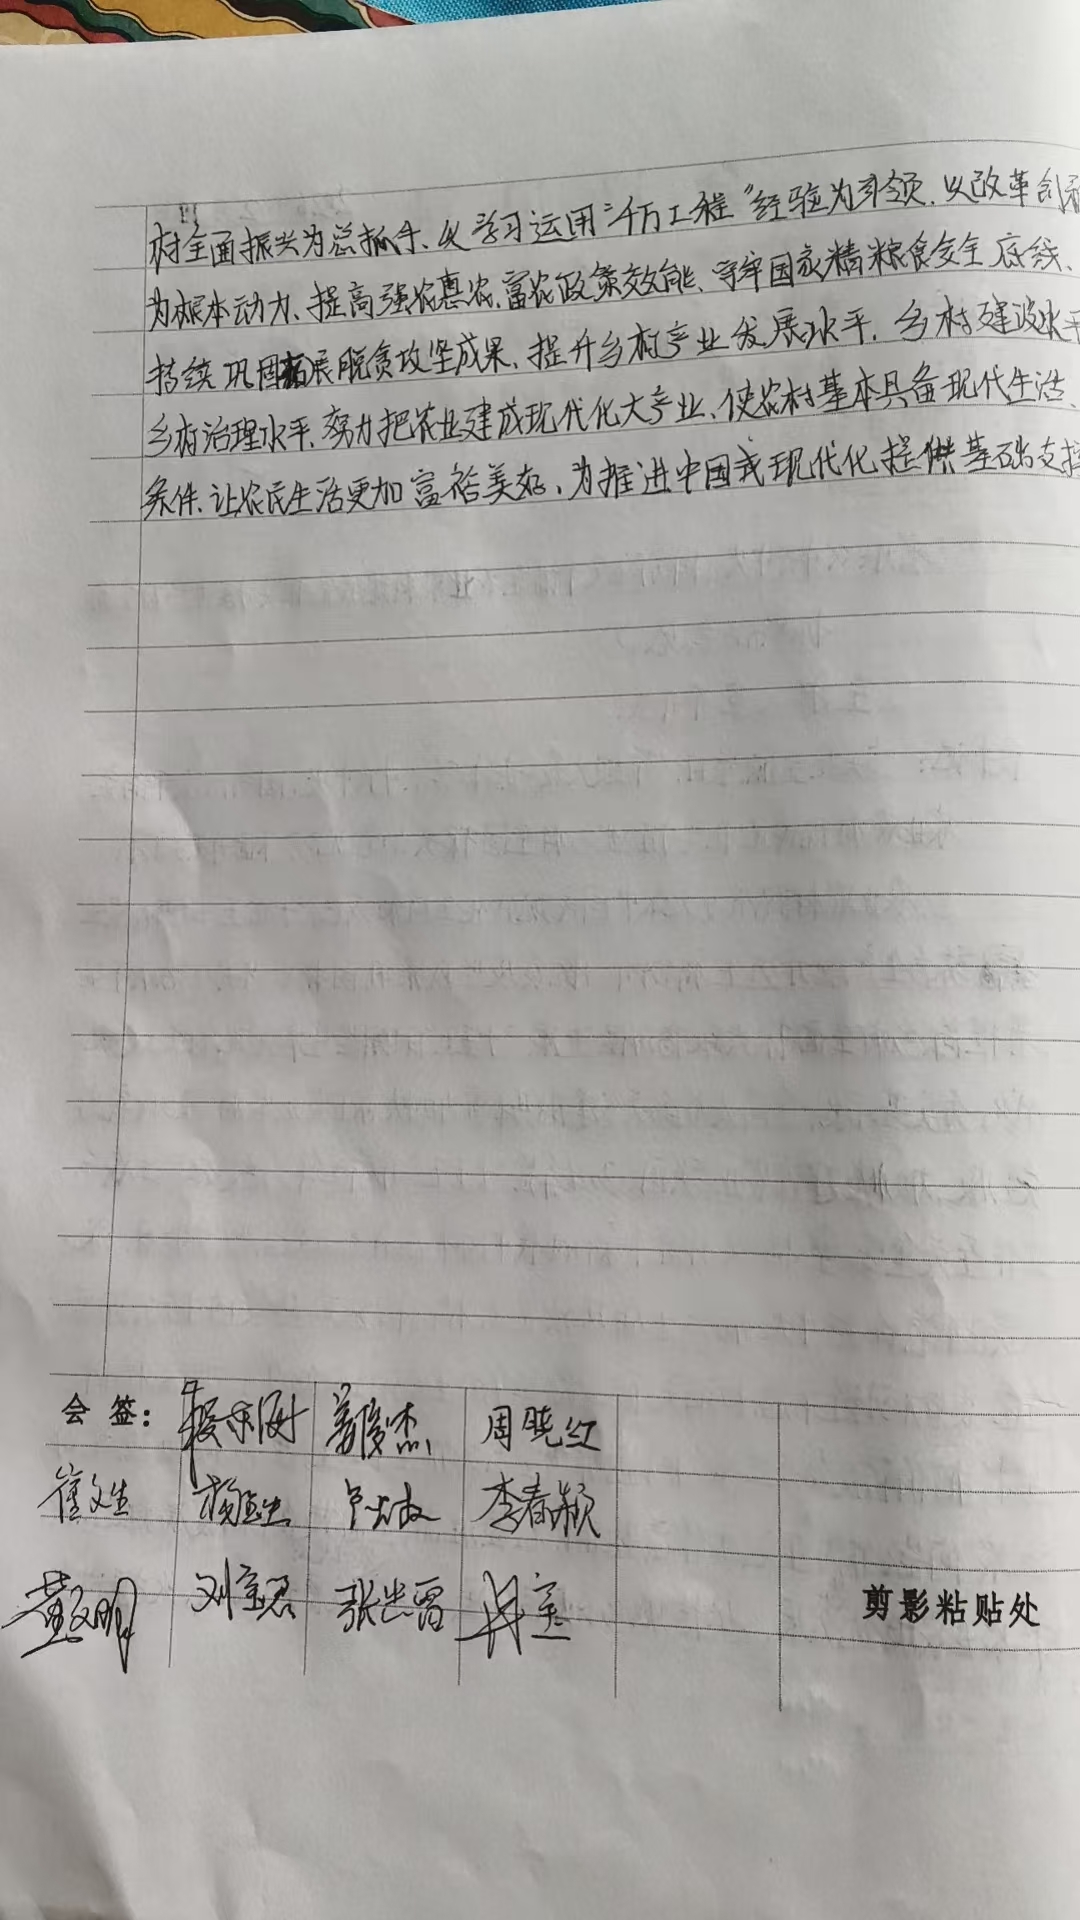 村全面振兴为总抓手、以学习运用“千万工程”经验为引领、以改革创新
为根本动力、提高强农惠农富农政策效能、守牢国家精粮食安全底线、
持续巩固拓展脱贫攻坚成果、提升乡村产业发展水平、乡村建设水平
乡村治理水平、努力把农业建成现代化大产业、使农村基本具备现代生活
条件、让农民生活更加富裕美好、为推进中国式现代化提供基础支撑
会签： 姜俊杰 周晓红
崔文生 李春颖
黄文明 刘宝君 张忠雷
剪影粘贴处